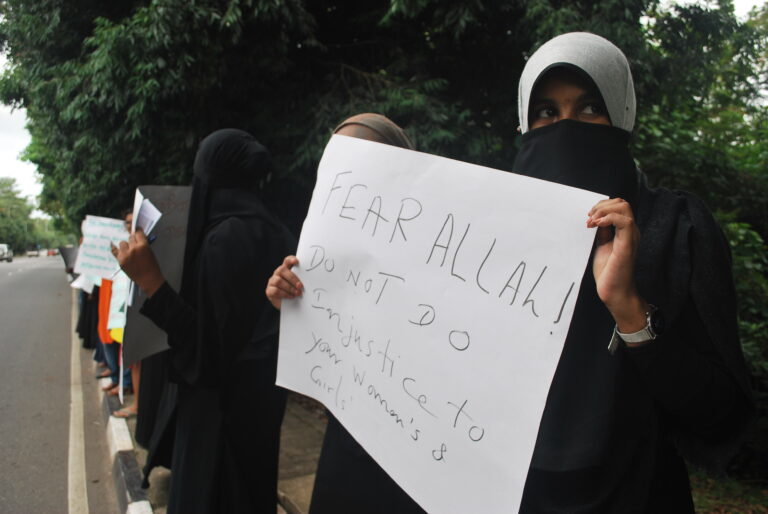 FEAR ALLAH!
DO NOT DO
Injustice to
your Women's &
Girls'